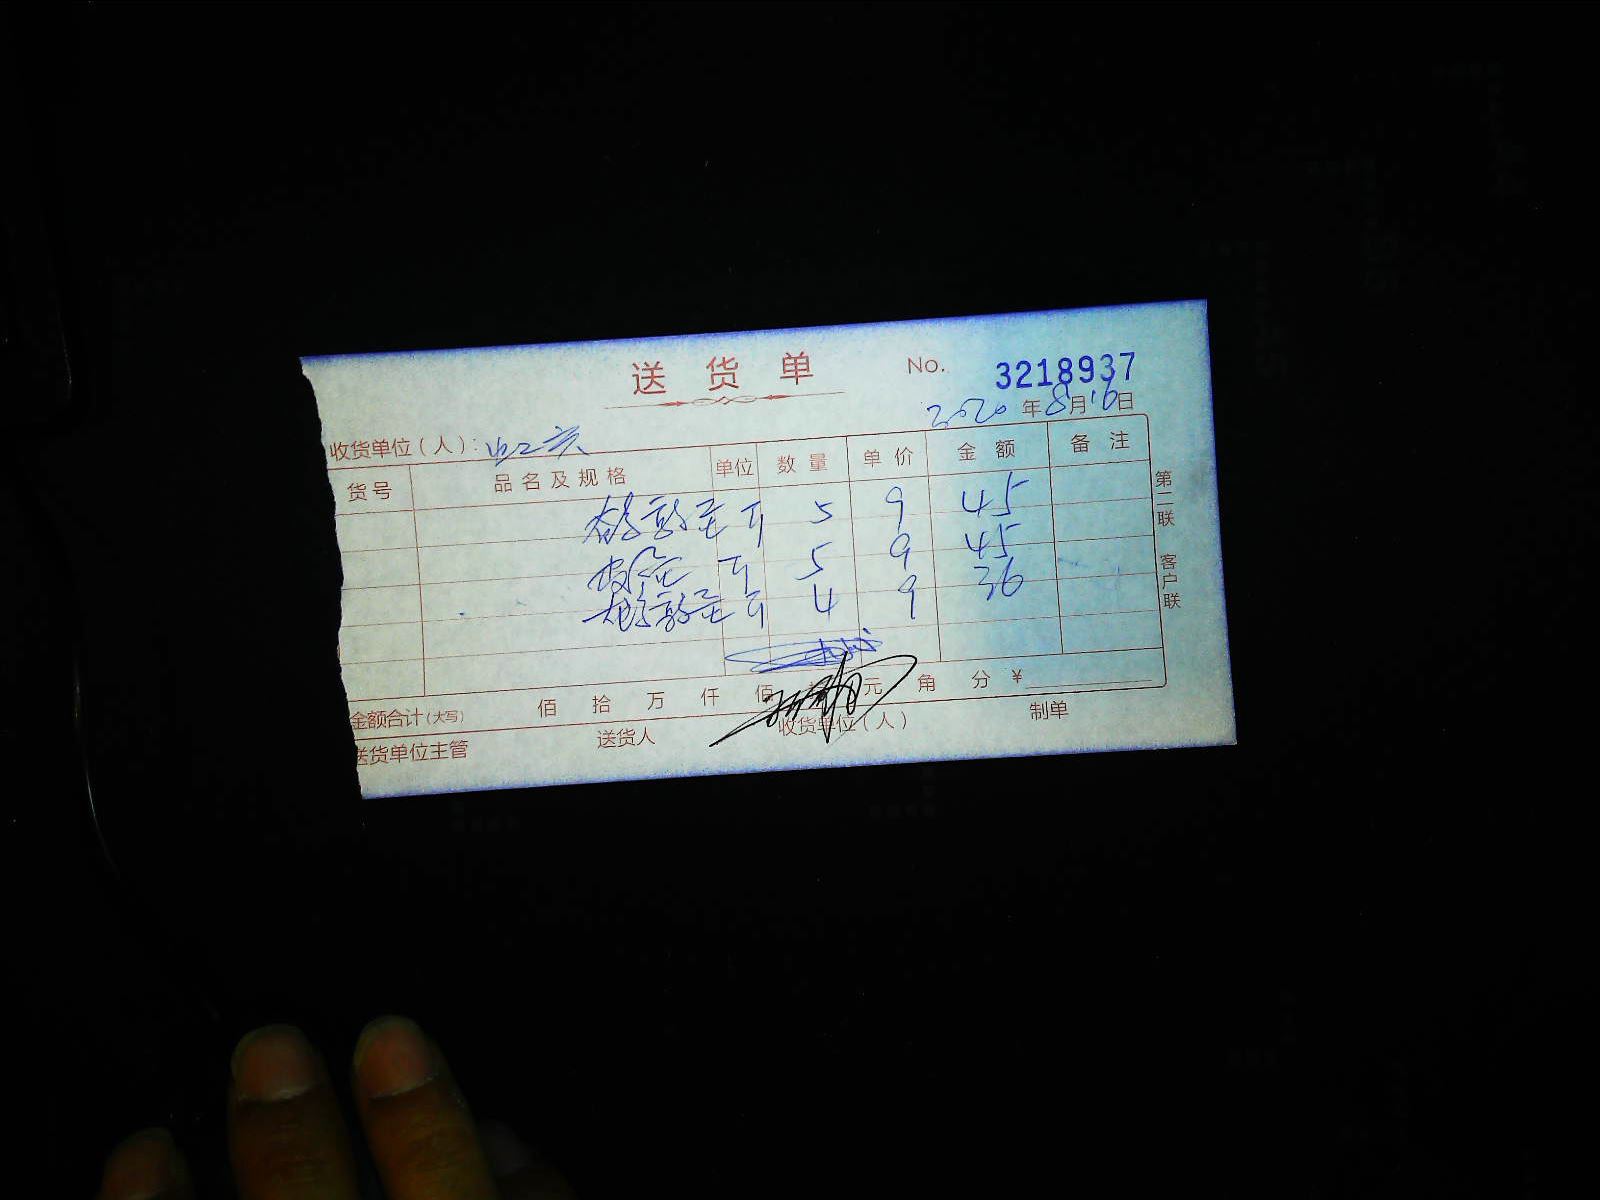 送货单 No. 3218937
2020年8月16日
收货单位(人):
货号 品名及规格 单位 数量 单价 金额 备注
5 9 45
5 9 45
4 9 36
金额合计(大写) 佰 拾 万 仟 佰 元 角 分 ¥
送货单位主管 送货人 收货单位(人) 制单
第二联 客户联